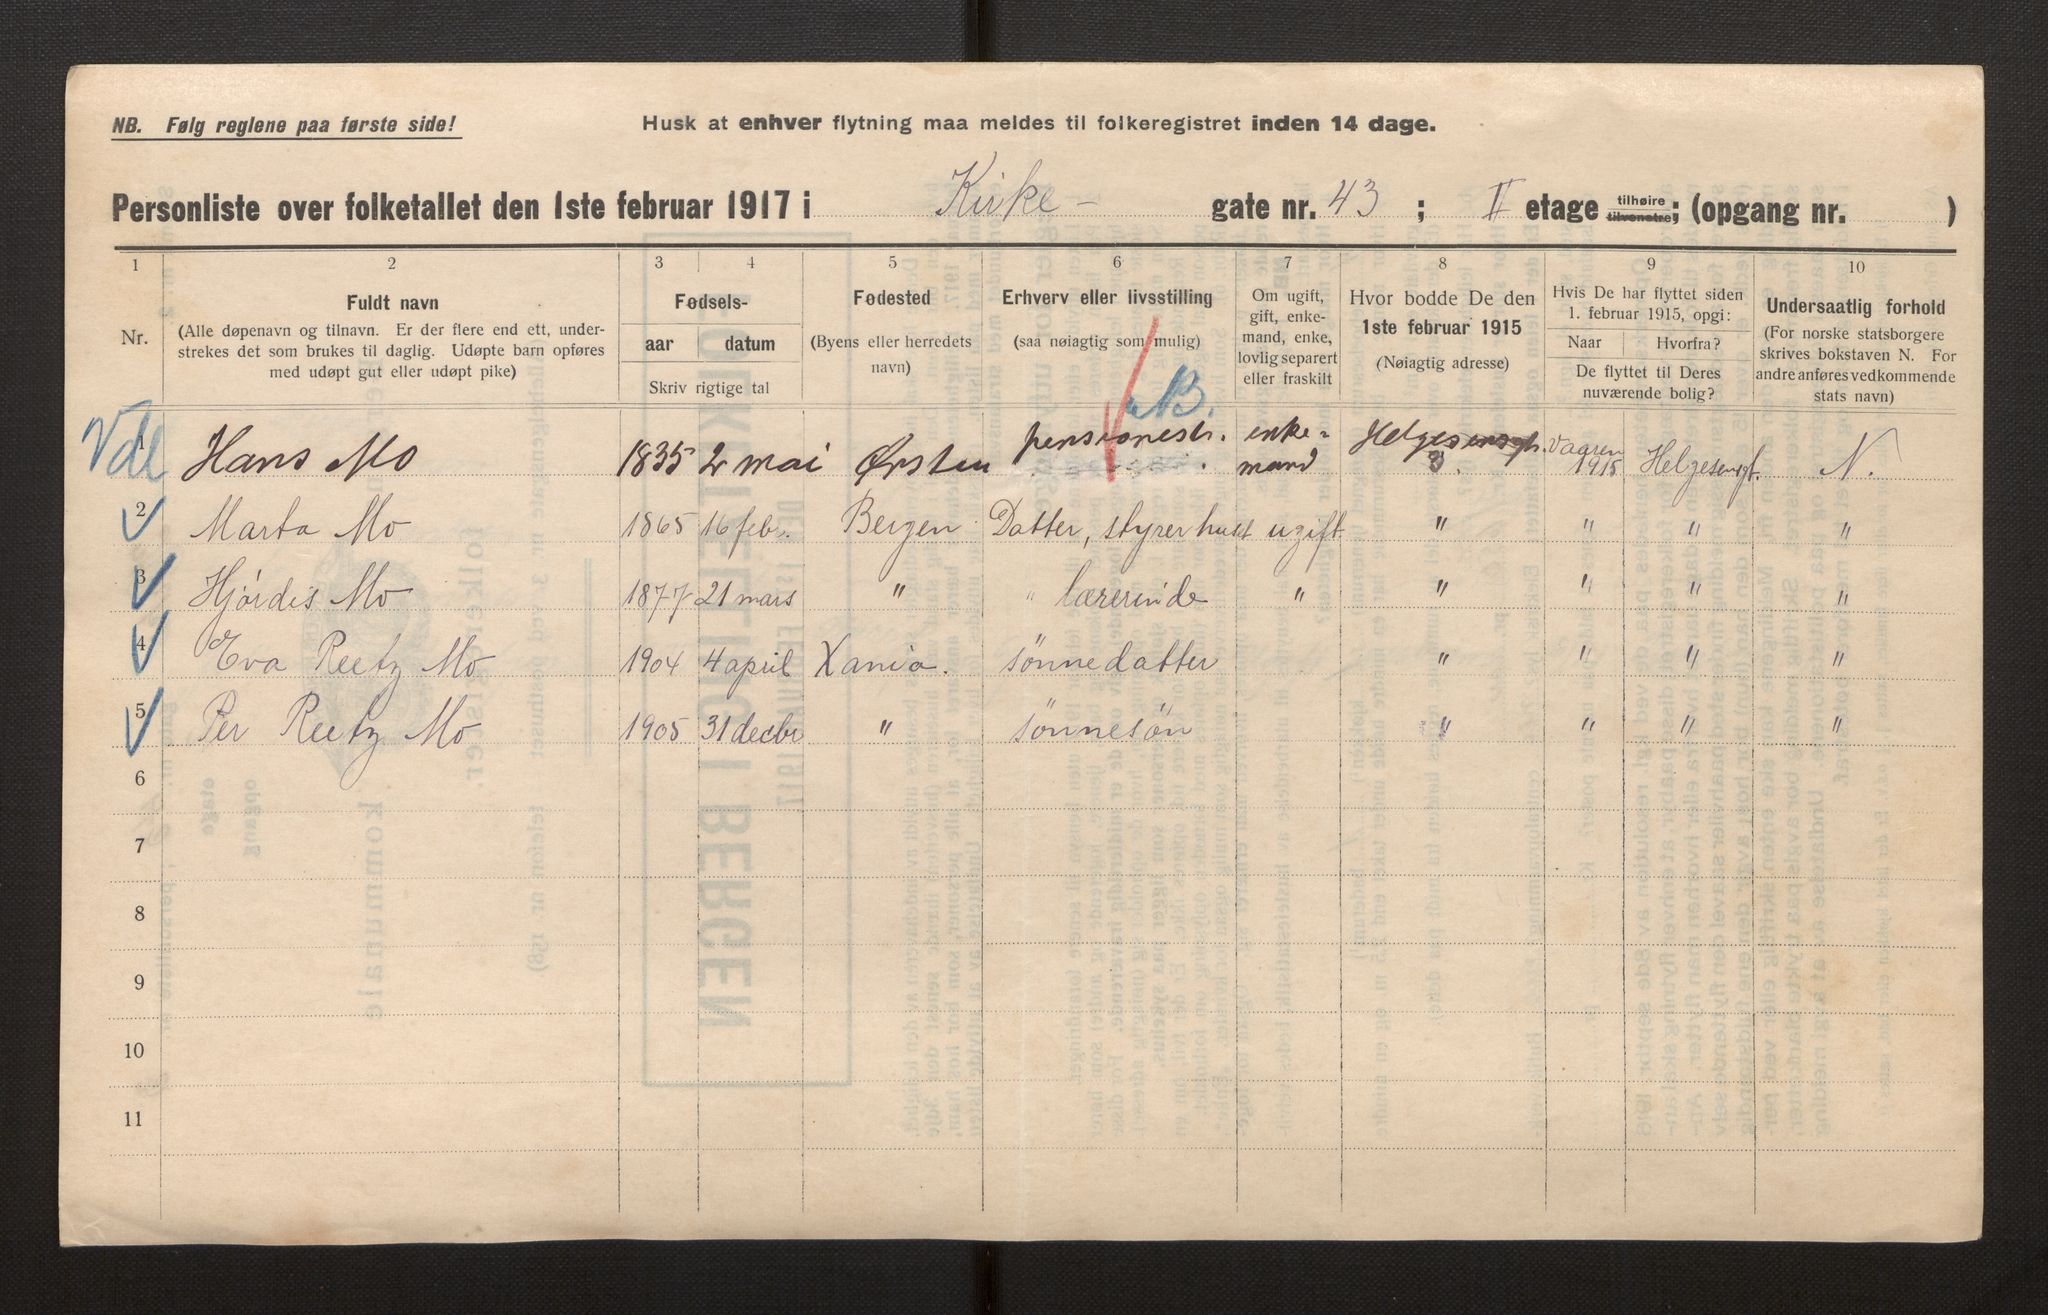 NB. Følg reglene paa første side!
Husk at enhver flytning maa meldes til folkeregistret inden 14 dage.
Personliste over folketallet den 1ste februar 1917 i Kirke- gate nr. 43 ; II etage tilhøire tilvenstre ; (opgang nr. )
1 2 3 4 5 6 7 8 9 10
Nr.
Fuldt navn
(Alle døpenavn og tilnavn. Er der flere end ett, under-
strekes det som brukes til daglig. Udøpte barn opføres
med udøpt gut eller udøpt pike)
Fødsels-
aar datum
Skriv rigtige tal
Fødested
(Byens eller herredets
navn)
Erhverv eller livsstilling
(saa nøiagtig som mulig)
Om ugift,
gift, enke-
mand, enke,
lovlig separert
eller fraskilt
Hvor bodde De den
1ste februar 1915
(Nøiagtig adresse)
Hvis De har flyttet siden
1. februar 1915, opgi:
Naar Hvorfra?
De flyttet til Deres
nuværende bolig?
Undersaatlig forhold
(For norske statsborgere
skrives bokstaven N. For
andre anføres vedkommende
stats navn)
1 Hans Mo 1835 2 mai Ørsten pensionestr. enke-mand Helgesensgt. 3. Vaaren 1915 Helgesensgt. N.
2 Marta Mo 1865 16 feb. Bergen Datter, styrer huset ugift " " " "
3 Hjördis Mo 1877 21 mars " " lærerinde " " " " "
4 Eva Reetz Mo 1904 4 april Xania. sönnedatter " " " "
5 Per Reetz Mo 1905 31 decbr " sönnesön " " " "
6
7
8
9
10
11